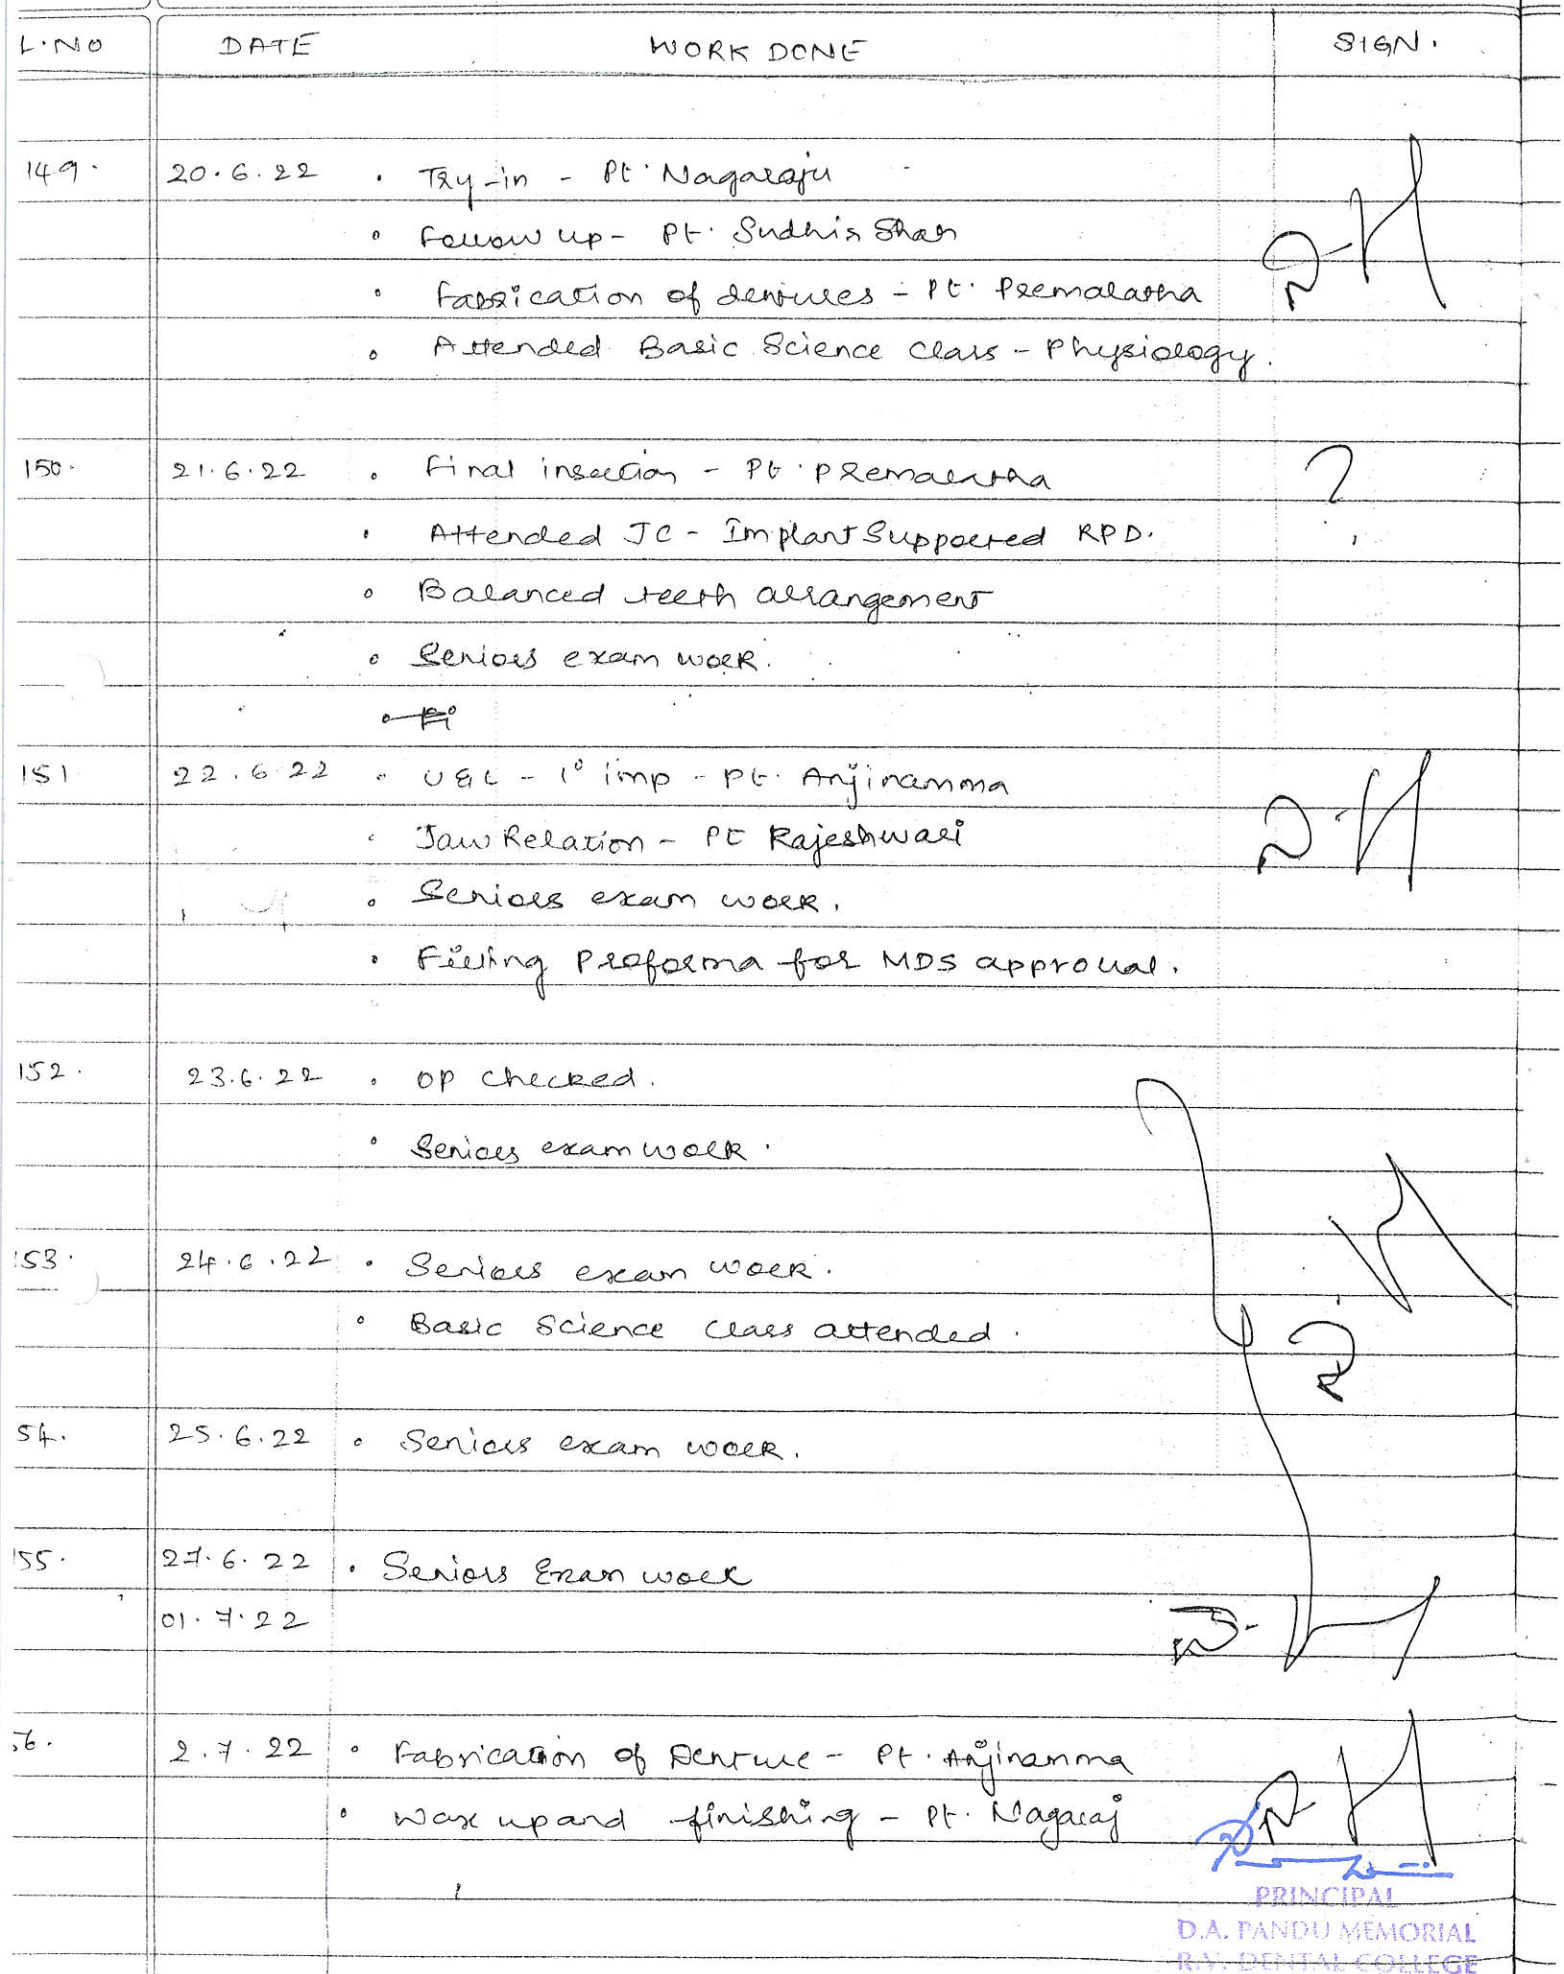 L.NO DATE WORK DONE SIGN.
149. 20.6.22 • Try-in - Pt. Nagaraju
• Follow up - Pt. Sudhir Shah
• Fabrication of dentures - Pt. Premalatha
• Attended Basic Science Class - Physiology.
150. 21.6.22 • Final insertion - Pt. Premalatha
• Attended JC - Implant Supported RPD.
• Balanced teeth arrangement
• Seniors exam work.
151 22.6.22 • U&L - 1° imp - Pt. Anjinamma
• Jaw Relation - Pt Rajeshwari
• Seniors exam work.
• Filling Proforma for MDS approval.
152. 23.6.22 • OP checked.
• Seniors exam work.
153. 24.6.22 • Seniors exam work.
• Basic Science class attended.
54. 25.6.22 • Seniors exam work.
155. 27.6.22 • Seniors Exam work
01.7.22
56. 2.7.22 • Fabrication of Denture - Pt. Anjinamma
• Wax up and finishing - Pt. Nagaraj
PRINCIPAL
D.A. PANDU MEMORIAL
R.V. DENTAL COLLEGE